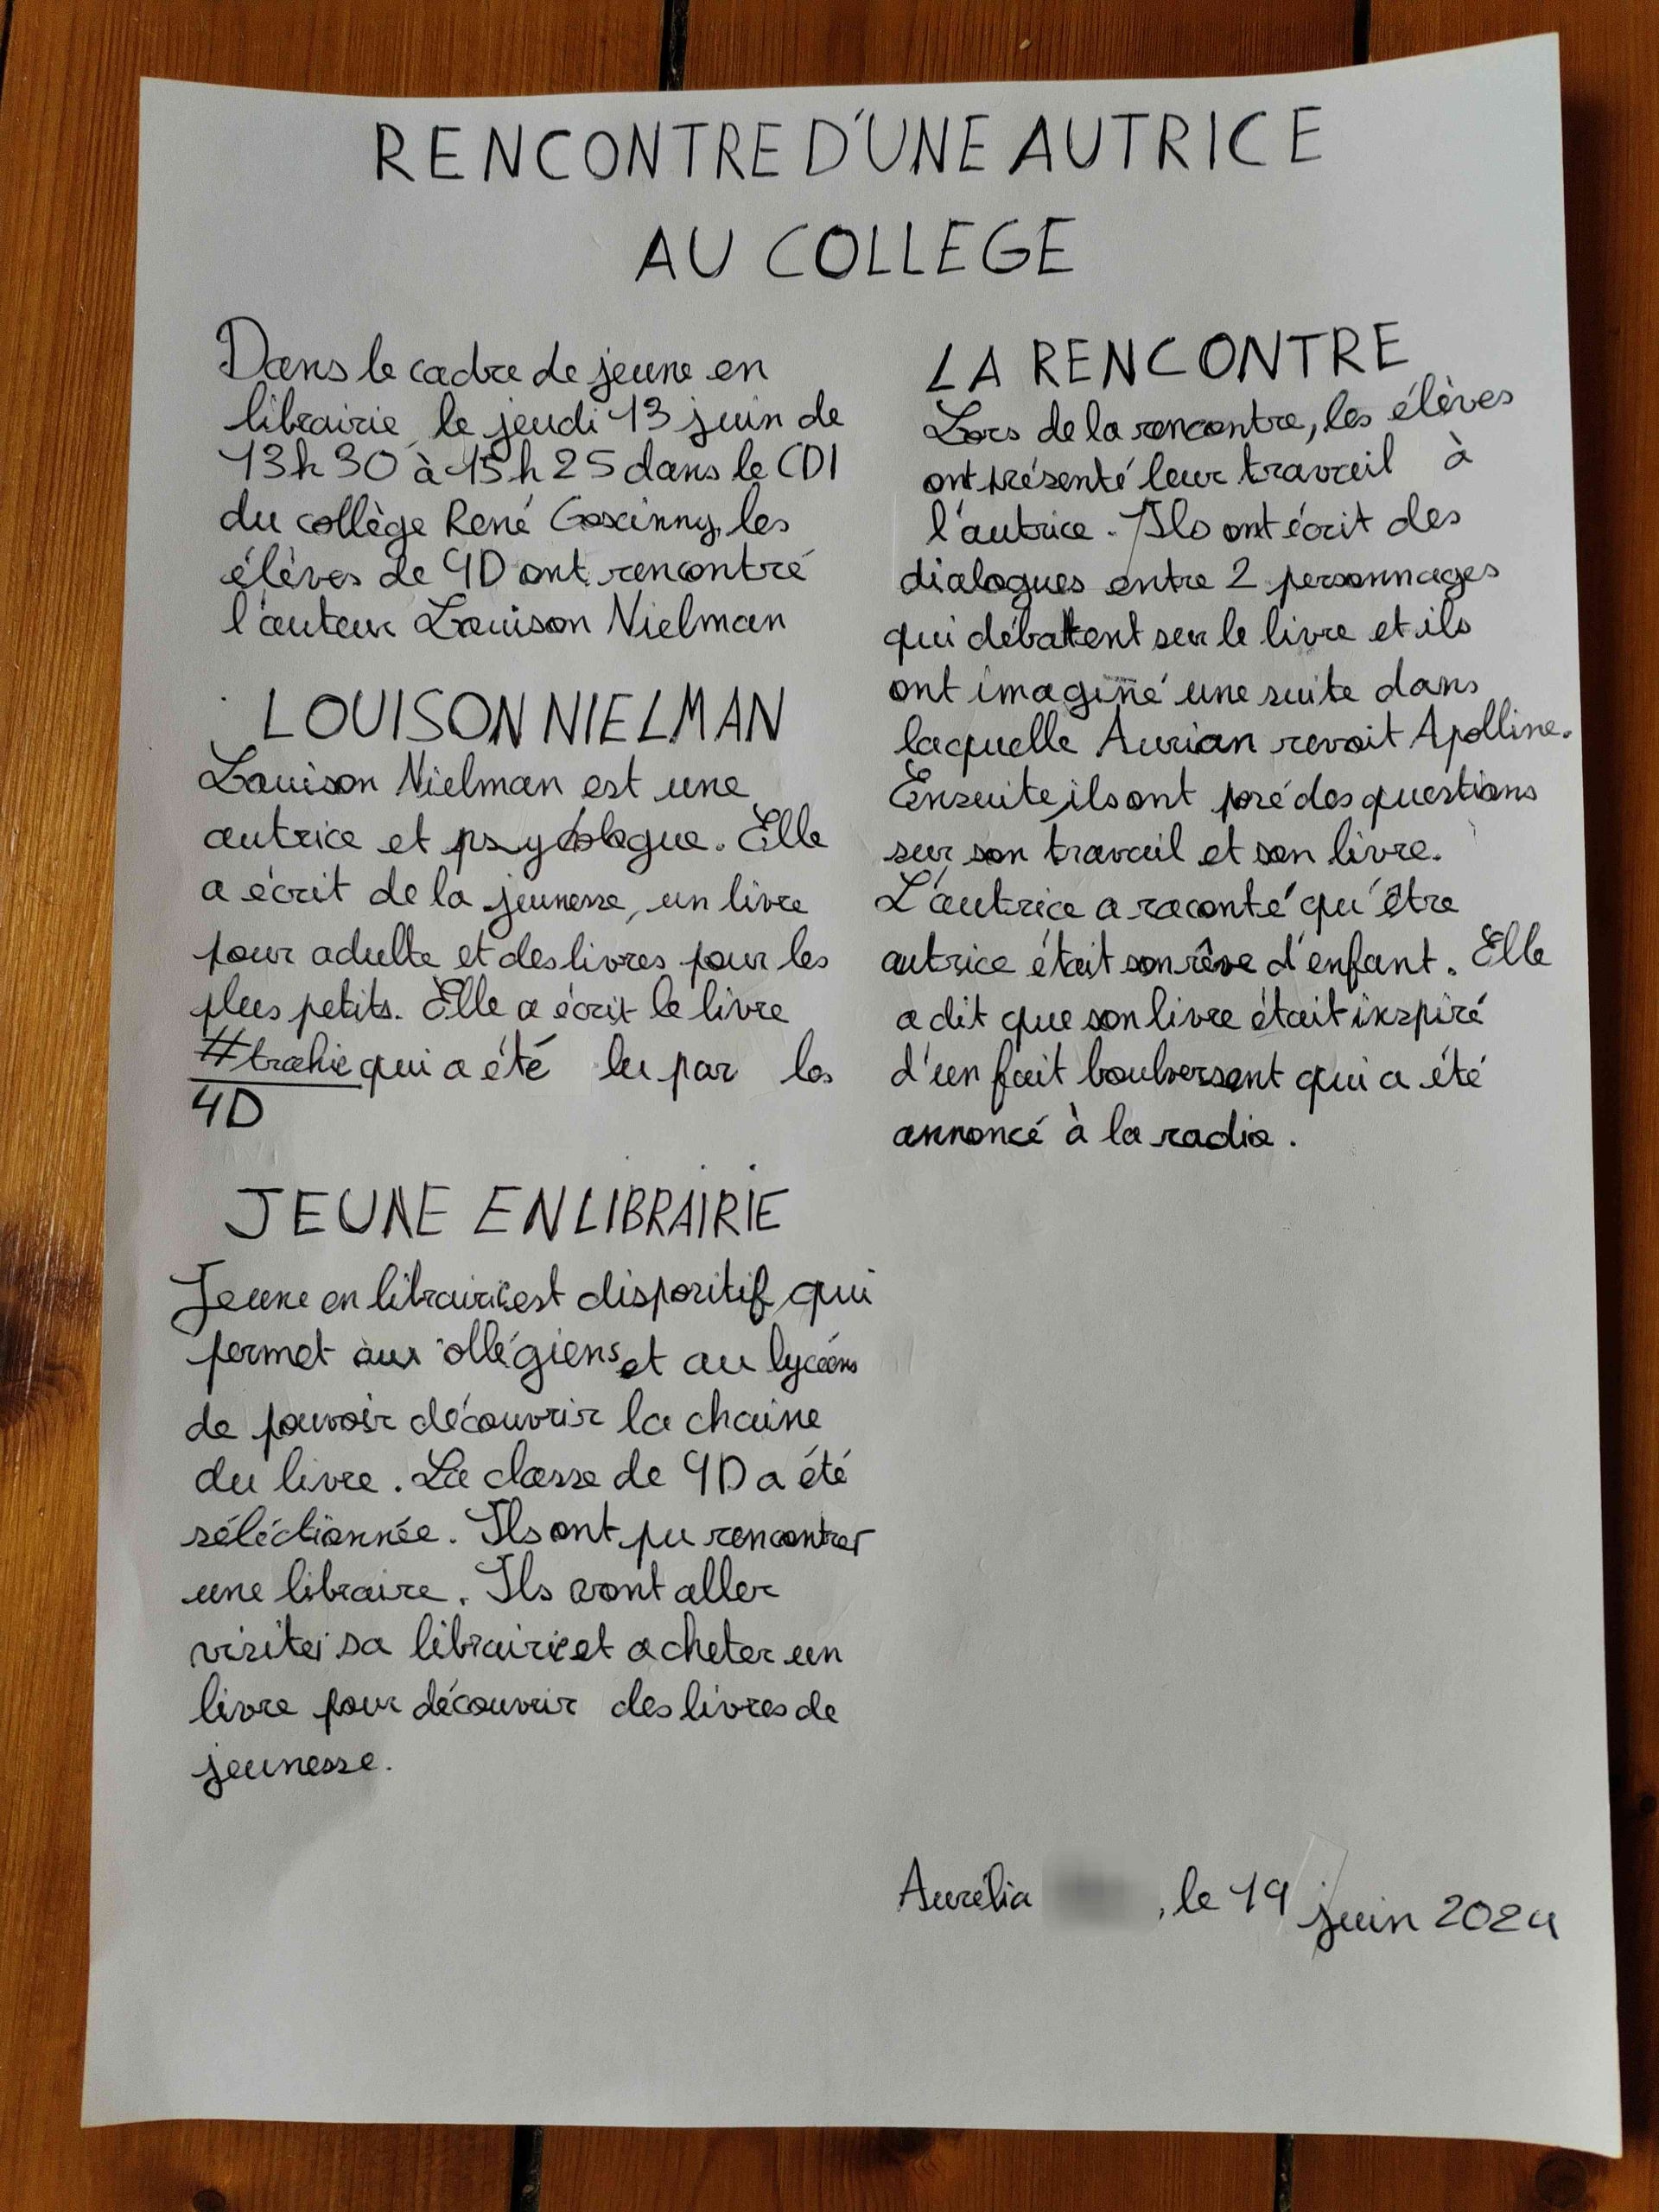 RENCONTRE D'UNE AUTRICE
AU COLLEGE
Dans le cadre de jeune en
librairie, le jeudi 13 juin de
13h30 à 15h25 dans le CDI
du collège René Goscinny, les
élèves de 4D ont rencontré
l'auteur Louison Nielman
LOUISON NIELMAN
Louison Nielman est une
autrice et psychologue. Elle
a écrit de la jeunesse, un livre
pour adulte et des livres pour les
plus petits. Elle a écrit le livre
#trahie qui a été lu par les
4D
JEUNE EN LIBRAIRIE
Jeune en librairie est dispositif qui
permet aux ollégiens et au lycéens
de pouvoir découvrir la chaine
du livre. La classe de 4D a été
séléctionnée. Ils ont pu rencontrer
une libraire. Ils vont aller
visiter sa librairie et acheter un
livre pour découvrir des livres de
jeunesse.
LA RENCONTRE
Lors de la rencontre, les élèves
ont présenté leur travail à
l'autrice. Ils ont écrit des
dialogues entre 2 personnages
qui débattent sur le livre et ils
ont imaginé une suite dans
laquelle Aurian revoit Apolline.
Ensuite, ils ont posé des questions
sur son travail et son livre.
L'autrice a raconté qu'être
autrice était son rêve d'enfant. Elle
a dit que son livre était inspiré
d'un fait boulversant qui a été
annoncé à la radio.
Aurélia , le 19 juin 2024